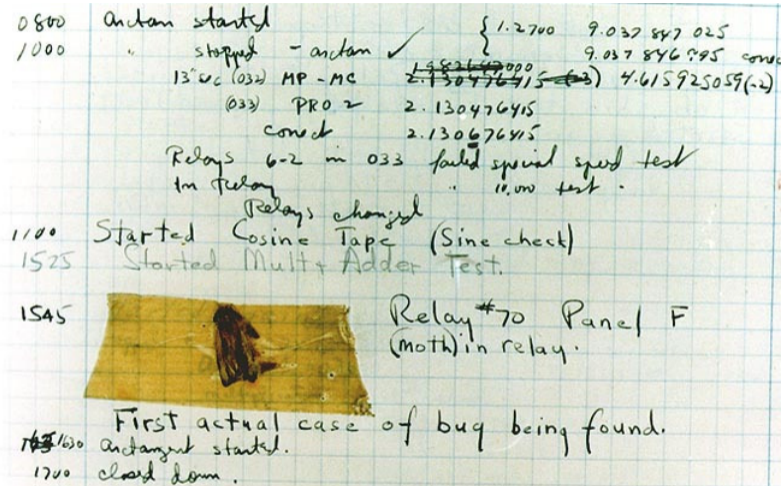 0800 arctan started { 1.2700 9.037 847 025
1000 " stopped - arctan ✓ { 9.037 846 795 correct
13" uc (032) MP - MC 2.130476415 (-3) 4.615925059(-2)
(033) PRO 2 2.130476415
correct 2.130676415
Relays 6-2 in 033 failed special speed test
In Relay " 10,000 test .
Relays changed
1100 Started Cosine Tape (Sine check)
1525 Started Mult+ Adder Test.
1545 Relay #70 Panel F
(moth) in relay.
First actual case of bug being found.
1630 arctangent started.
1700 closed down.